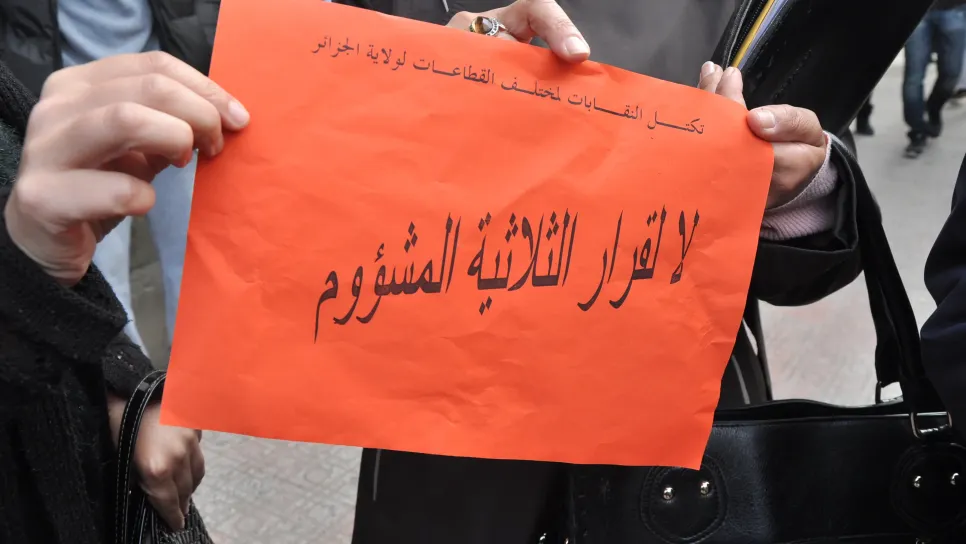 تكتل النقابات لمختلف القطاعات لولاية الجزائر
لا لقرار الثلاثية المشؤوم